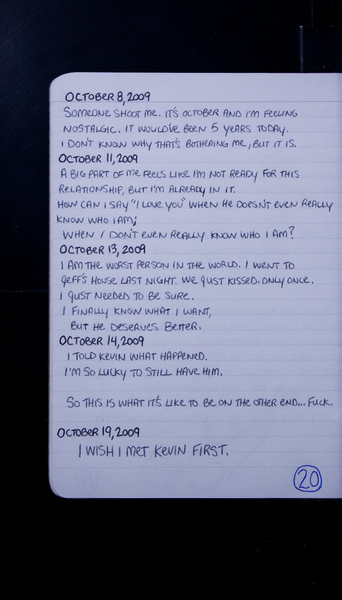 OCTOBER 8, 2009
SOMEONE SHOOT ME. IT'S OCTOBER AND I'M FEELING
NOSTALGIC. IT WOULD'VE BEEN 5 YEARS TODAY.
I DON'T KNOW WHY THAT'S BOTHERING ME, BUT IT IS.
OCTOBER 11, 2009
A BIG PART OF ME FEELS LIKE I'M NOT READY FOR THIS
RELATIONSHIP, BUT I'M ALREADY IN IT.
HOW CAN I SAY "I LOVE YOU" WHEN HE DOESN'T EVEN REALLY
KNOW WHO I AM;
WHEN I DON'T EVEN REALLY KNOW WHO I AM?
OCTOBER 13, 2009
I AM THE WORST PERSON IN THE WORLD. I WENT TO
JEFF'S HOUSE LAST NIGHT. WE JUST KISSED. ONLY ONCE.
I JUST NEEDED TO BE SURE.
I FINALLY KNOW WHAT I WANT,
BUT HE DESERVES BETTER.
OCTOBER 14, 2009
I TOLD KEVIN WHAT HAPPENED.
I'M SO LUCKY TO STILL HAVE HIM.
SO THIS IS WHAT IT'S LIKE TO BE ON THE OTHER END... FUCK.
OCTOBER 19, 2009
I WISH I MET KEVIN FIRST.
20